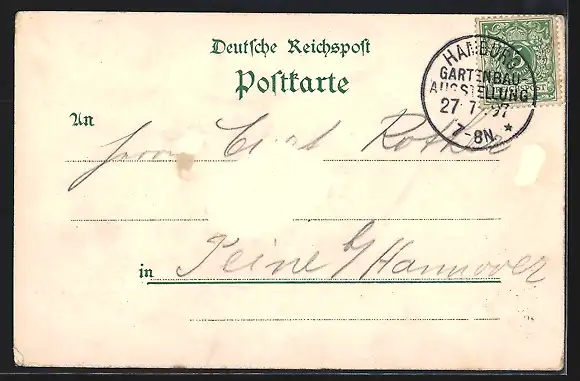 Deutsche Reichspost
Postkarte
HAMBURG
GARTENBAU-
AUSSTELLUNG
27 7 97
7-8N.
An
Herrn Rother
in Peine b/Hannover